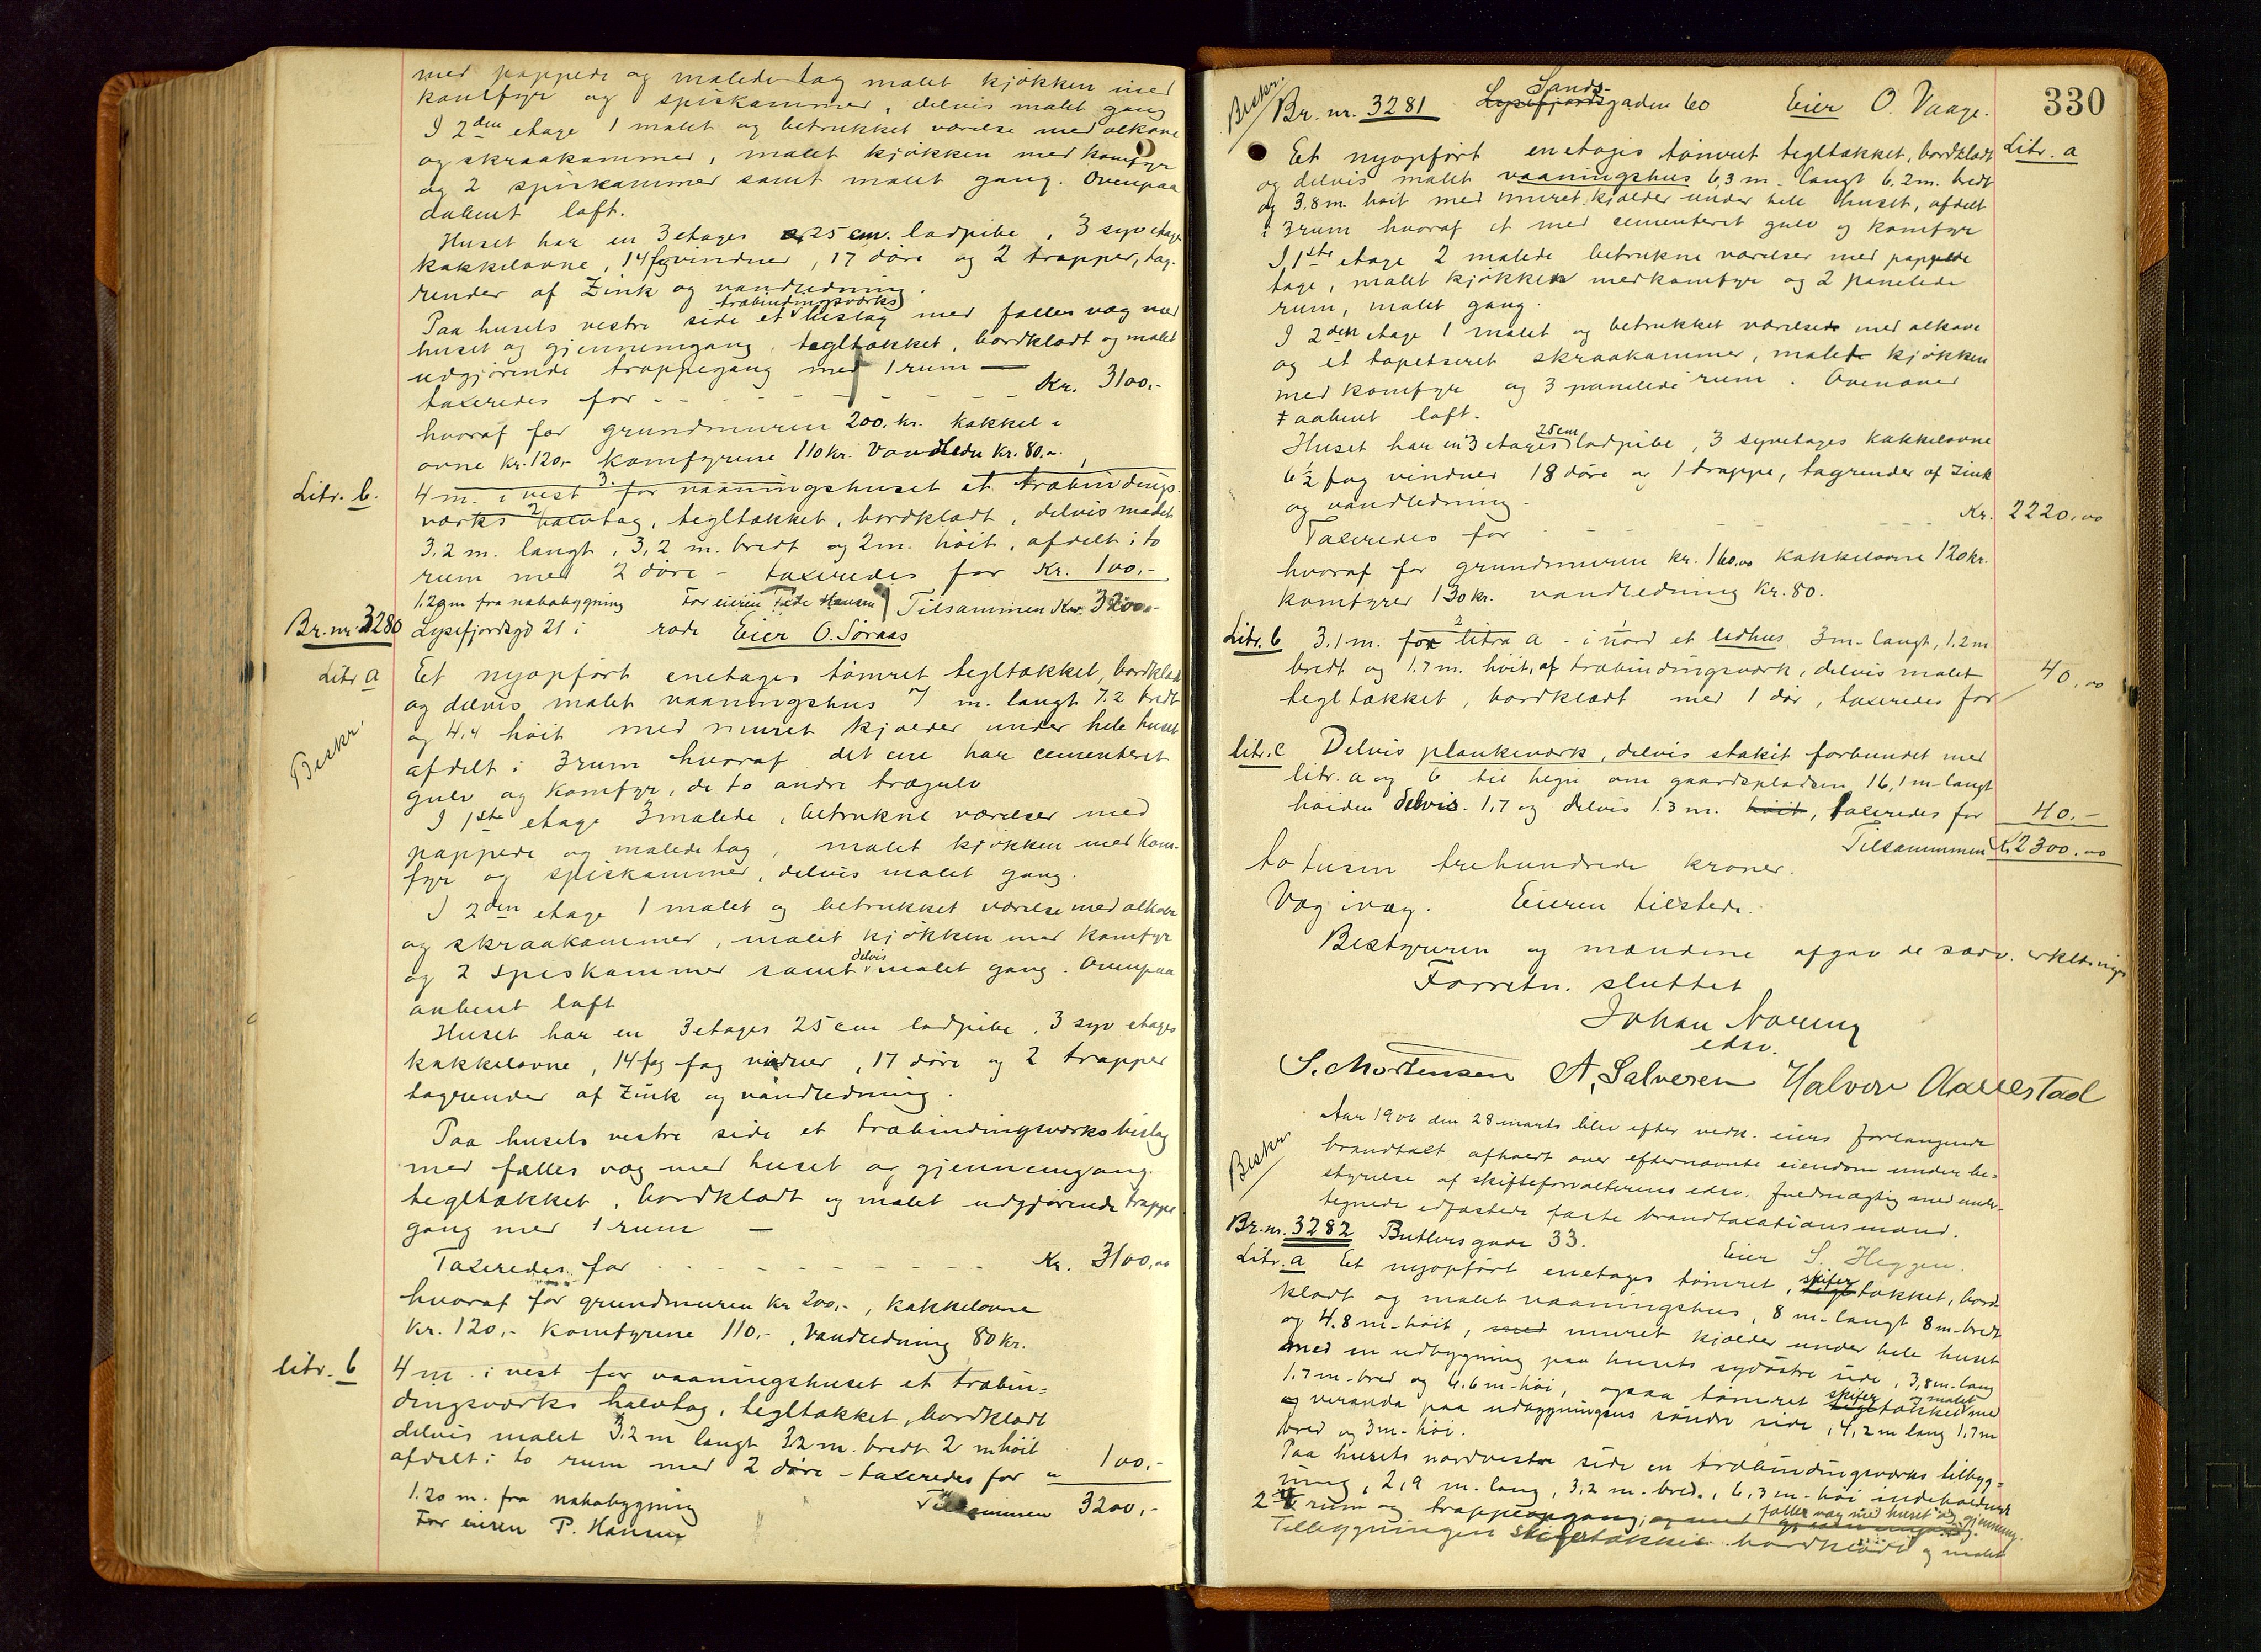 med pappede og malede tag malet kjøkken med
komfyr og spiskammer, delvis malet gang
I 2den etage 1 malet og betrukket værelse med alkove
og skraakammer, malet kjøkken med komfyr
og 2 spiskammer samt malet gang. Ovenpaa
aabent loft.
Huset har en 3 etages 25 cm. ladpibe, 3 syv etages
kakkelovne, 14 fag vinduer, 17 døre og 2 trapper, tag-
render af Zink og vandledning.
træbindingsværks
Paa husets vestre side et bislag med fælles væg med
huset og gjennemgang, tegltækket, bordklædt og malet
udgjørende trappegang med 1 rum —
taxeredes for - - - - - - - - Kr. 3100.-
hvoraf for grundmuren 200. kr. kakkel-
ovne Kr. 120.- komfyrene 110 kr. Vandledn Kr. 80.-
Litr. b. 4 m. i vest for vaaningshuset et træbindings-
værks halvtag, tegltækket, bordklædt, delvis malet
3,2 m. langt, 3,2 m. bredt og 2 m. høit, afdelt i to
rum med 2 døre - taxeredes for Kr. 100.-
1.20m fra nabobygning For eieren Peder Hansen Tilsammen Kr. 3200.-
Br. nr. 3280 Lysefjordsgd 21 i rode Eier O. Søraas
Litr a Et nyopført enetages tømret tegltækket, bordklædt
og delvis malet vaaningshus 7 m. langt 7.2 bredt
og 4,4 høit med muret kjælder under hele huset
Beskr.
afdelt i 3 rum hvoraf det ene har cementeret
gulv og komfyr, de to andre trægulv
I 1ste etage 3 malede, betrukne værelser med
pappede og malede tag, malet kjøkken med kom-
fyr og spiskammer, delvis malet gang.
I 2den etage 1 malet og betrukket værelse med alkove
og skraakammer, malet kjøkken med komfyr
og 2 spiskammer samt delvis malet gang. Ovenpaa
aabent loft
Huset har en 3 etages 25 cm ladpibe, 3 syv etages
kakkelovne, 14 fag fag vinduer, 17 døre og 2 trapper
tagrender af Zink og vandledning.
Paa husets vestre side et træbindingsværks bislag
med fælles væg med huset og gjennemgang
tegltækket, bordklædt og malet udgjørende trappe
gang med 1 rum —
Taxeredes for - - - - - - - - Kr. 3100,00
hvoraf for grundmuren Kr 200,-, kakkelovne
Kr. 120,- Komfyrene 110,-, Vandledning 80 kr.
litr. b 4 m. i vest for vaaningshuset et træbin-
dingsværks halvtag, tegltækket, bordklædt
delvis malet 3.2 m langt 3.2 m. bredt 2 m høit
afdelt i to rum med 2 døre - taxeredes for " 100.-
1.20 m. fra nabobygning Tilsammen 3200,-
For eieren P. Hansen
330
Beskr.
Sands-
Br. nr. 3281 Lysefjordsgaden 60 Eier O. Vaage.
Et nyopført enetages tømret tegltækket, bordklædt Litr. a
og delvis malet vaaningshus 6,3 m. langt 6,2 m. bredt
og 3.8 m. høit med muret kjælder under hele huset, afdelt
i 3 rum hvoraf et med cementeret gulv og komfyr
I 1ste etage 2 malede betrukne værelser med pappede
tage, malet kjøkken med komfyr og 2 panelede
rum, malet gang.
I 2den etage 1 malet og betrukket værelse med alkove
og et tapetseret skraakammer, malet kjøkken
med komfyr og 3 panelede rum. Ovenover
aabent loft.
Huset har en 3 etages 25 cm ladpibe, 3 syvetages kakkelovne
6½ fag vinduer 18 døre og 1 trappe, tagrender af Zink
og vandledning.
Taxeredes for - - - - - Kr. 2220,00
hvoraf for grundmuren kr. 160,00 kakkelovne 120 kr.
komfyrer 130 kr. vandledning Kr. 80.
Litr. b 3.1 m. for litra a - i nord et udhus 3 m- langt, 1.2 m
bredt og 1.7 m. høit, af træbindingsværk, delvis malet
tegltækket, bordklædt med 1 dør, taxeredes for 40,00
litr. c Delvis plankeværk, delvis stakit forbundet med
litr. a og b til hegn om gaardspladsen 16,1 m- langt
høiden delvis 1,7 og delvis 1.3 m. høit, taxeredes for 40.-
Tilsammen Kr. 2300.00
to tusen trehundrede kroner.
Væg i væg. Eieren tilstede.
Bestyreren og mændene afgav de sædv. erklæringer
Forretn. sluttet
Johan Noreng
edsv.
S. Mortensen A. Salvesen Halvor Aarrestad
Beskr.
Aar 1906 den 28 marts blev efter vedk. eiers forlangende
brandtaxt afholdt over efternævnte eiendom under be-
styrelse af skifteforvalterens edsv. fuldmægtig med under-
tegnede edfæstede faste brandtaxationsmænd.
Br. nr. 3282 Butlersgade 33. Eier S. Heggen.
Litr. a Et nyopført enetages tømret, skifertækket, bord-
klædt og malet vaaningshus, 8 m- langt 8 m- bredt
og 4.8 m- høit, med muret kjælder under hele huset
med en udbygning paa husets sydøstre side, 3,8 m- lang
1.7 m- bred og 6.6 m- høi, ogsaa tømret skifertækket og malet med
og veranda paa udbygningens søndre side, 4,2 m lang 1.7 m
bred og 3 m- høi.
Paa husets nordvestre side en træbindingsværks tilbyg-
ning, 2,9 m. lang, 3,2 m. bred, 6,3 m. høi indeholdende
2 rum og trappeopgang, fælles væg med huset og gjennemg.
Tilbygningen skifertækket bordklædt og malet